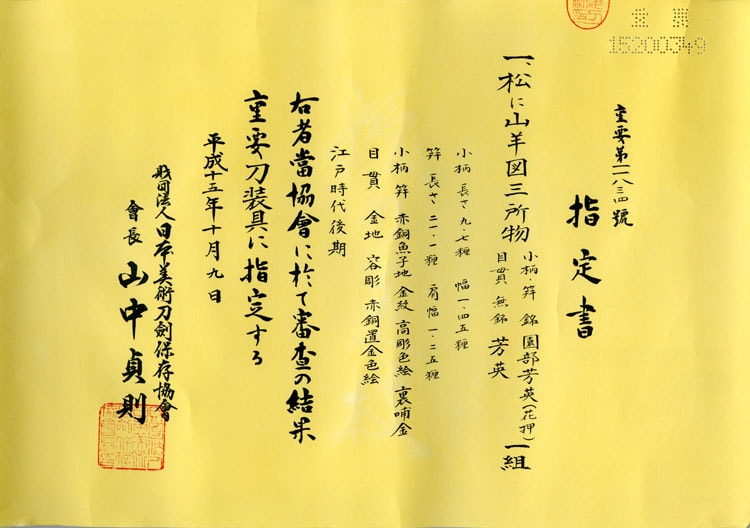 重要
15200349
重要第一一八三四號
指定書
一、松に山羊図三所物 小柄 笄 銘 園部芳英(花押) 一組
目貫 無銘 芳英
小柄 長さ 九・七糎 幅 一・四五糎
笄 長さ 二一・一糎 肩幅 一・二五糎
小柄 笄 赤銅魚子地 金紋 高彫色絵 裏哺金
目貫 金地 容彫 赤銅置金色絵
江戸時代後期
右者當協會に於て審査の結果
重要刀装具に指定する
平成十五年十月九日
財団法人日本美術刀劍保存協會
會長 山中貞則